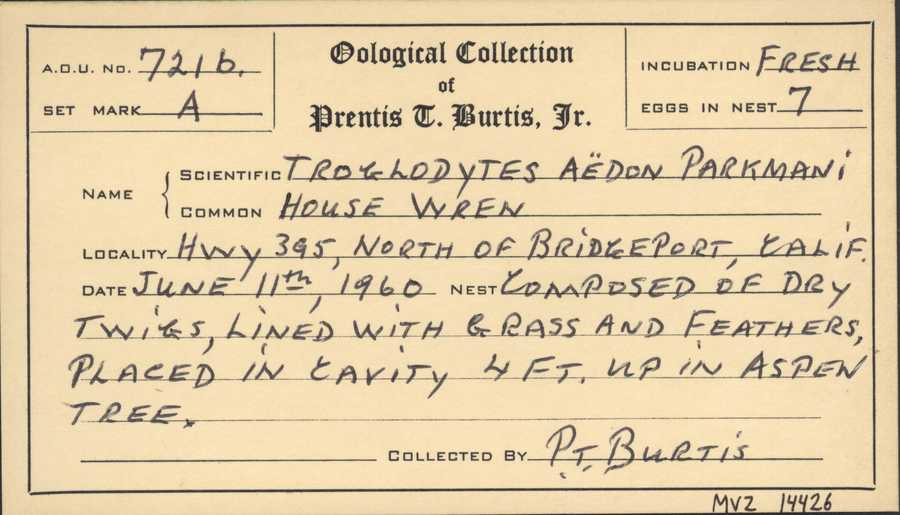 A.O.U. No. 721b.
SET MARK A
Oological Collection
of
Prentis T. Burtis, Jr.
INCUBATION FRESH
EGGS IN NEST 7
NAME { SCIENTIFIC TROGLODYTES AËDON PARKMANI
COMMON HOUSE WREN
LOCALITY HWY 395, NORTH OF BRIDGEPORT, CALIF.
DATE JUNE 11th, 1960 NEST COMPOSED OF DRY
TWIGS, LINED WITH GRASS AND FEATHERS,
PLACED IN CAVITY 4 FT. UP IN ASPEN
TREE.
COLLECTED BY P.T. BURTIS
MVZ 14426